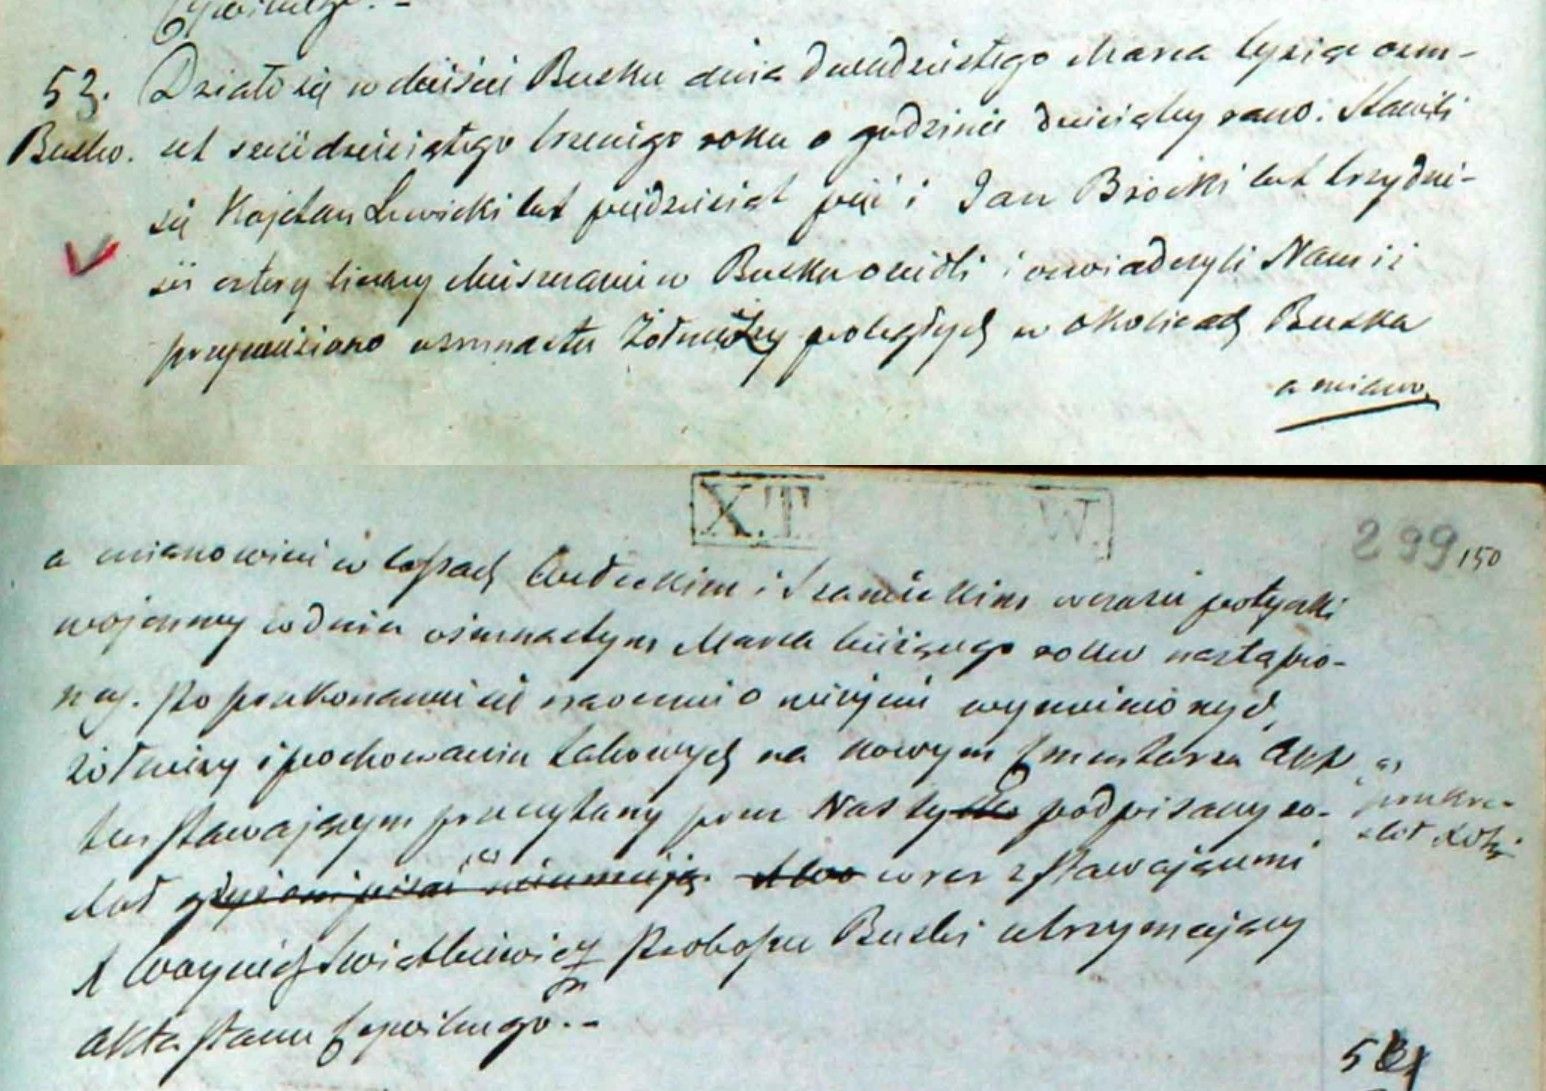 Cywilnego. -
53. Działo się w Mieście Busku dnia dwudziestego Marca tysiąc osm-
Busko. set sześćdziesiątego trzeciego roku o godzinie dziesiątey rano. Stawili
się Kajetan Lewicki lat pięćdziesiąt pięć i Jan Brocki lat trzydzie-
ści cztery liczący Mieszczanie w Busku osiedli i oswiadczyli Nam iż
przywieziono ośmnastu Żołnierzy poległych w okolicach Buska
a miano.
X.T. W.
299 150
a mianowicie w lasach i Szanieckim w czasie potyczki
wojenney w dniu ośmnastym Marca bieżącego roku nastąpio-
ney. Po przekonaniu się naocznie o zeyściu wymienionych
żołnierzy i pochowaniu takowych na nowym Cmentarzu Akt
ten stawającym przeczytany przez Nas tylko podpisany zo-
stał gdyż oni pisać nieumieją. wraz z stawającemi
X Woyciech Swietlniewicz Proboszcz Buski utrzymujący
akta stanu Cywilnego. -